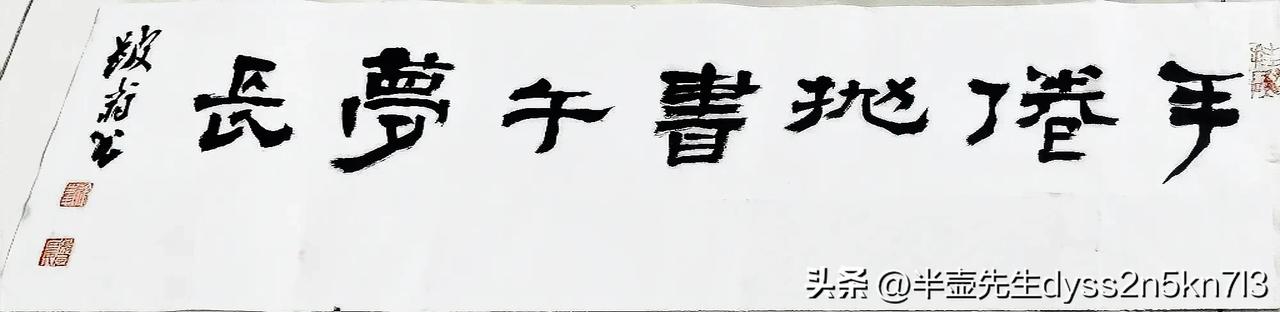 手倦抛書午夢長
頭条 @半壶先生dyss2n5kn7l3